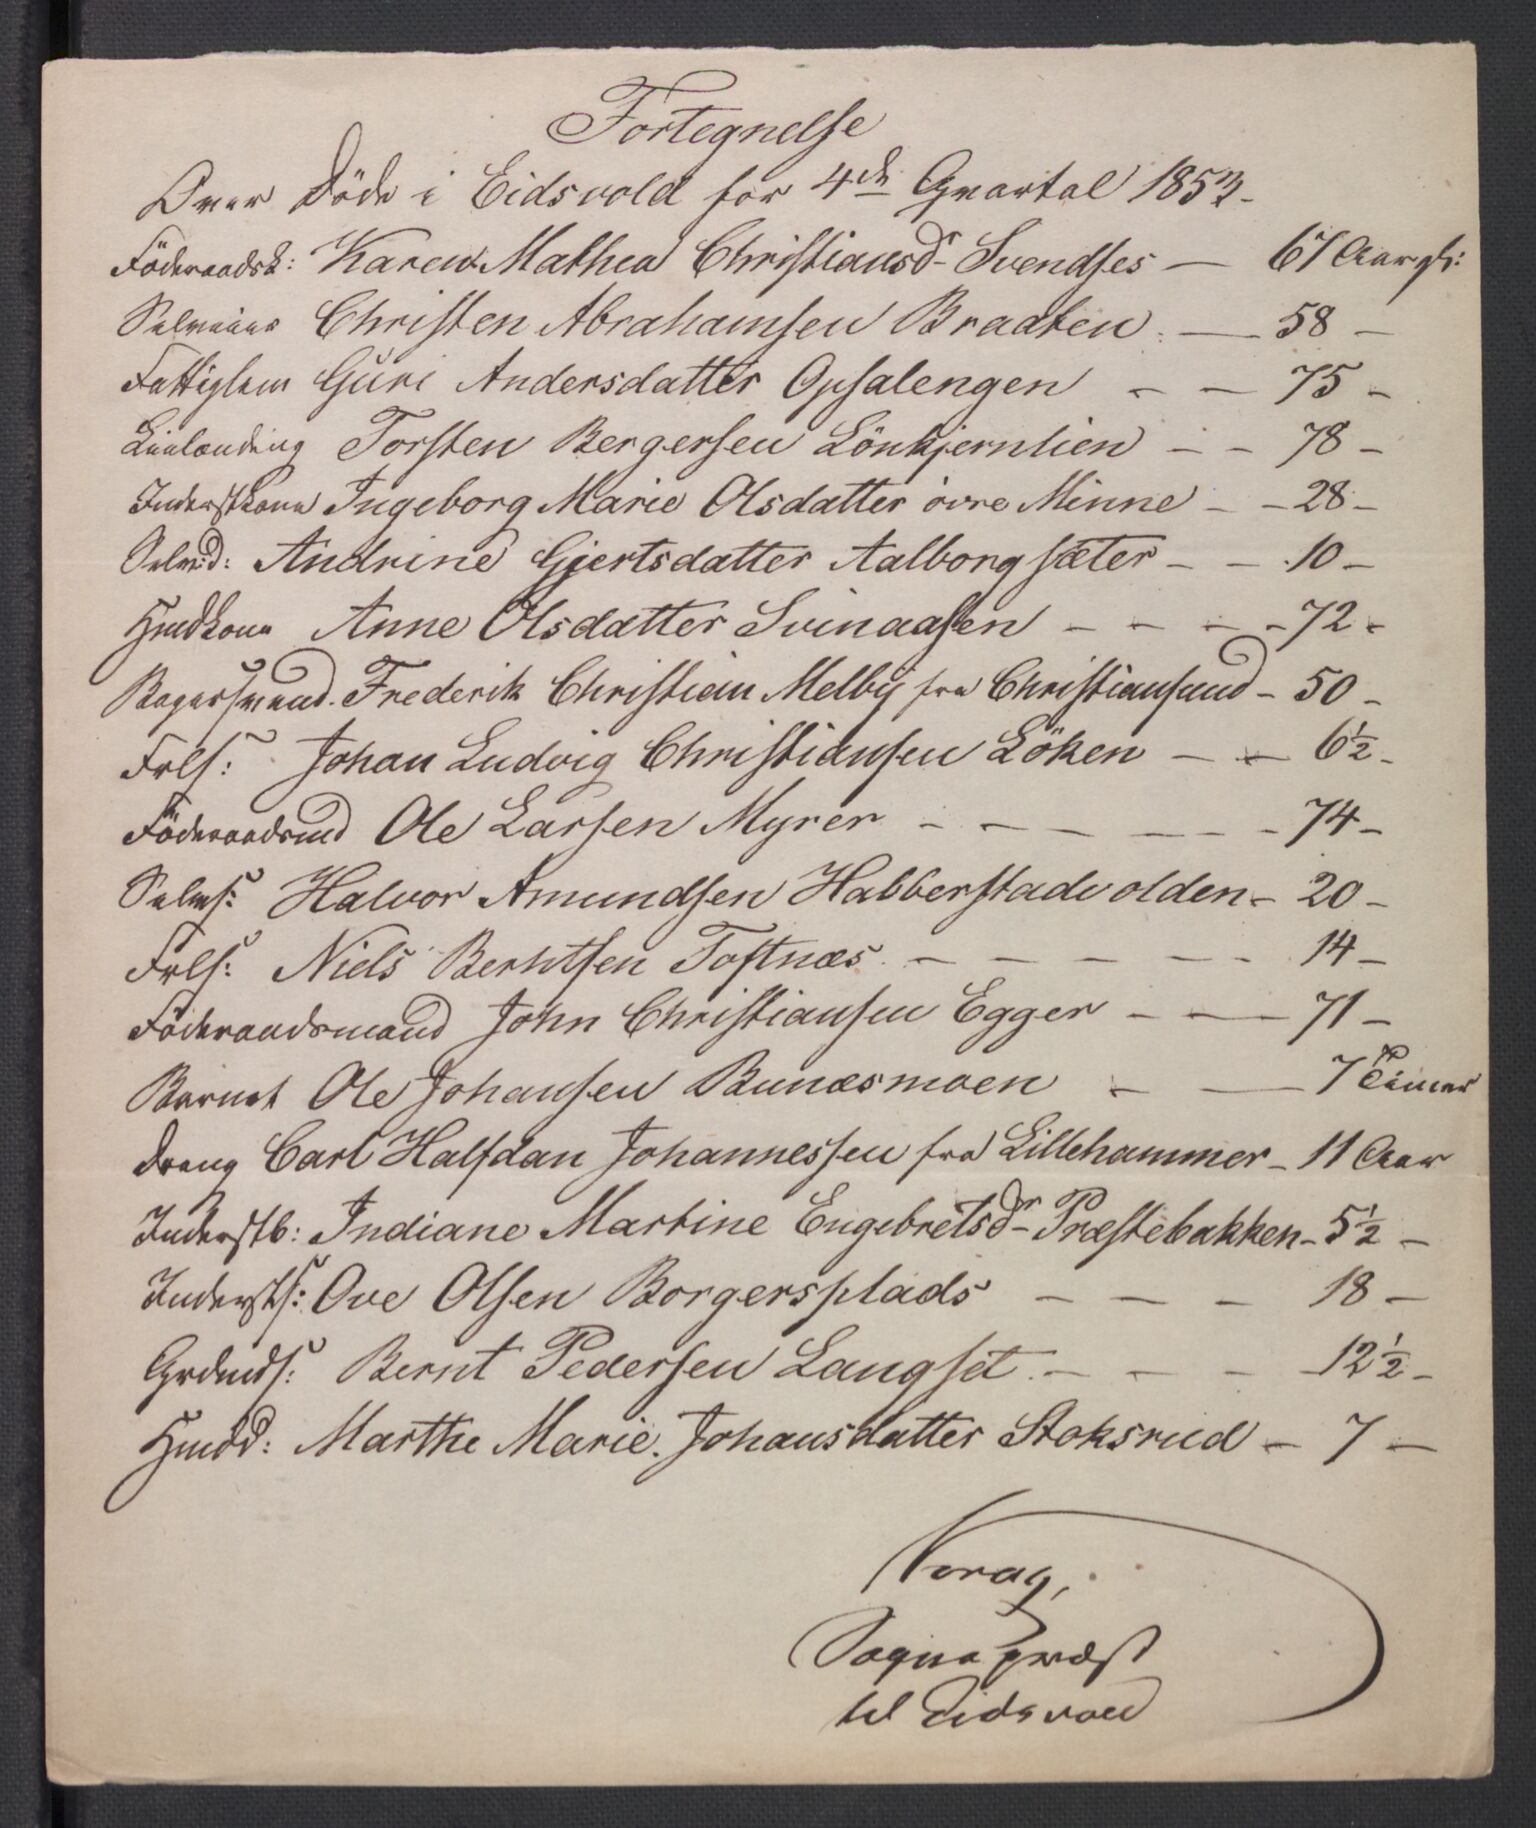 Fortegnelse
Over Döde i Eidsvold for 4de Qvartal 1853.
Föderaadsk: Karen Mathea Christiansdr Svendses — 67 Aar gl:
Selveier Christen Abrahamsen Braaten. — 58 —
Fattiglem Guri Andersdatter Opsalengen — — 75 —
Lönkjernlien Torsten Bergersen — — 78 —
Inderstkone Ingeborg Marie Olsdatter övre Minne — — 28 —
Selvd: Andrine Gjertsdatter Aalborgsæter — — 10 —
Hmdkone Anne Olsdatter Svinaasen — — — — 72 —
Bagersvend. Frederik Christian Melby fra Christiansund — 50 —
Frls: Johan Ludvig Christiansen Löken — — 6½ —
Föderaadsmd Ole Larsen Myrer — — — — — — 74 —
Selvs: Halvor Amundsen Habberstadvolden — 20 —
Frls: Niels Berntsen Toftnæs. — — — — — — 14 —
Föderaadsmand John Christiansen Egger — — — 71 —
Barnet Ole Johansen Bunæsmoen — — 7 Timer
Dreng Carl Halfdan Johannessen fra Lillehammer — 11 Aar
Inderstb: Indiane Martine Engebretsdr Præstebakken — 5½ —
Indersts: Ove Olsen Borgersplads — — — 18 —
Grdmds: Bernt Pedersen Langset. — — — — 12½ —
Hmdd: Marthe Marie Johansdatter Stoksrud — 7 —
Sognepræst
til Eidsvold